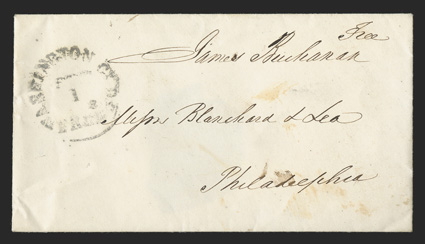 Free
James Buchanan
WASHINGTON CITY
1
FREE
Messrs Blanchard & Lea
Philadelphia